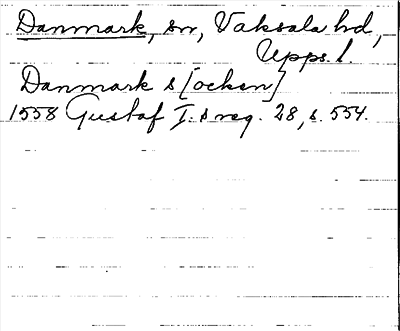 Danmark, sn, Vaksala hd,
Upps. l.
Danmark s [ocken]
1558 Gustaf I:s reg. 28, s. 554.